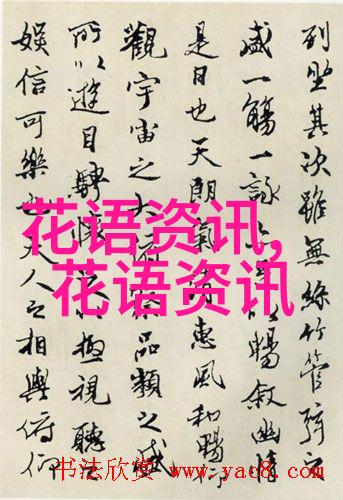 列坐其次雖無絲竹管弦之
盛一觴一詠以暢叙幽情
是日也天朗氣清惠風和暢仰
觀宇宙之大品類之盛
所以遊目騁懷極視聽之
娛信可樂也夫人之相與俯仰
花语资讯,
花语资讯
书法欣赏 www.yac8.com